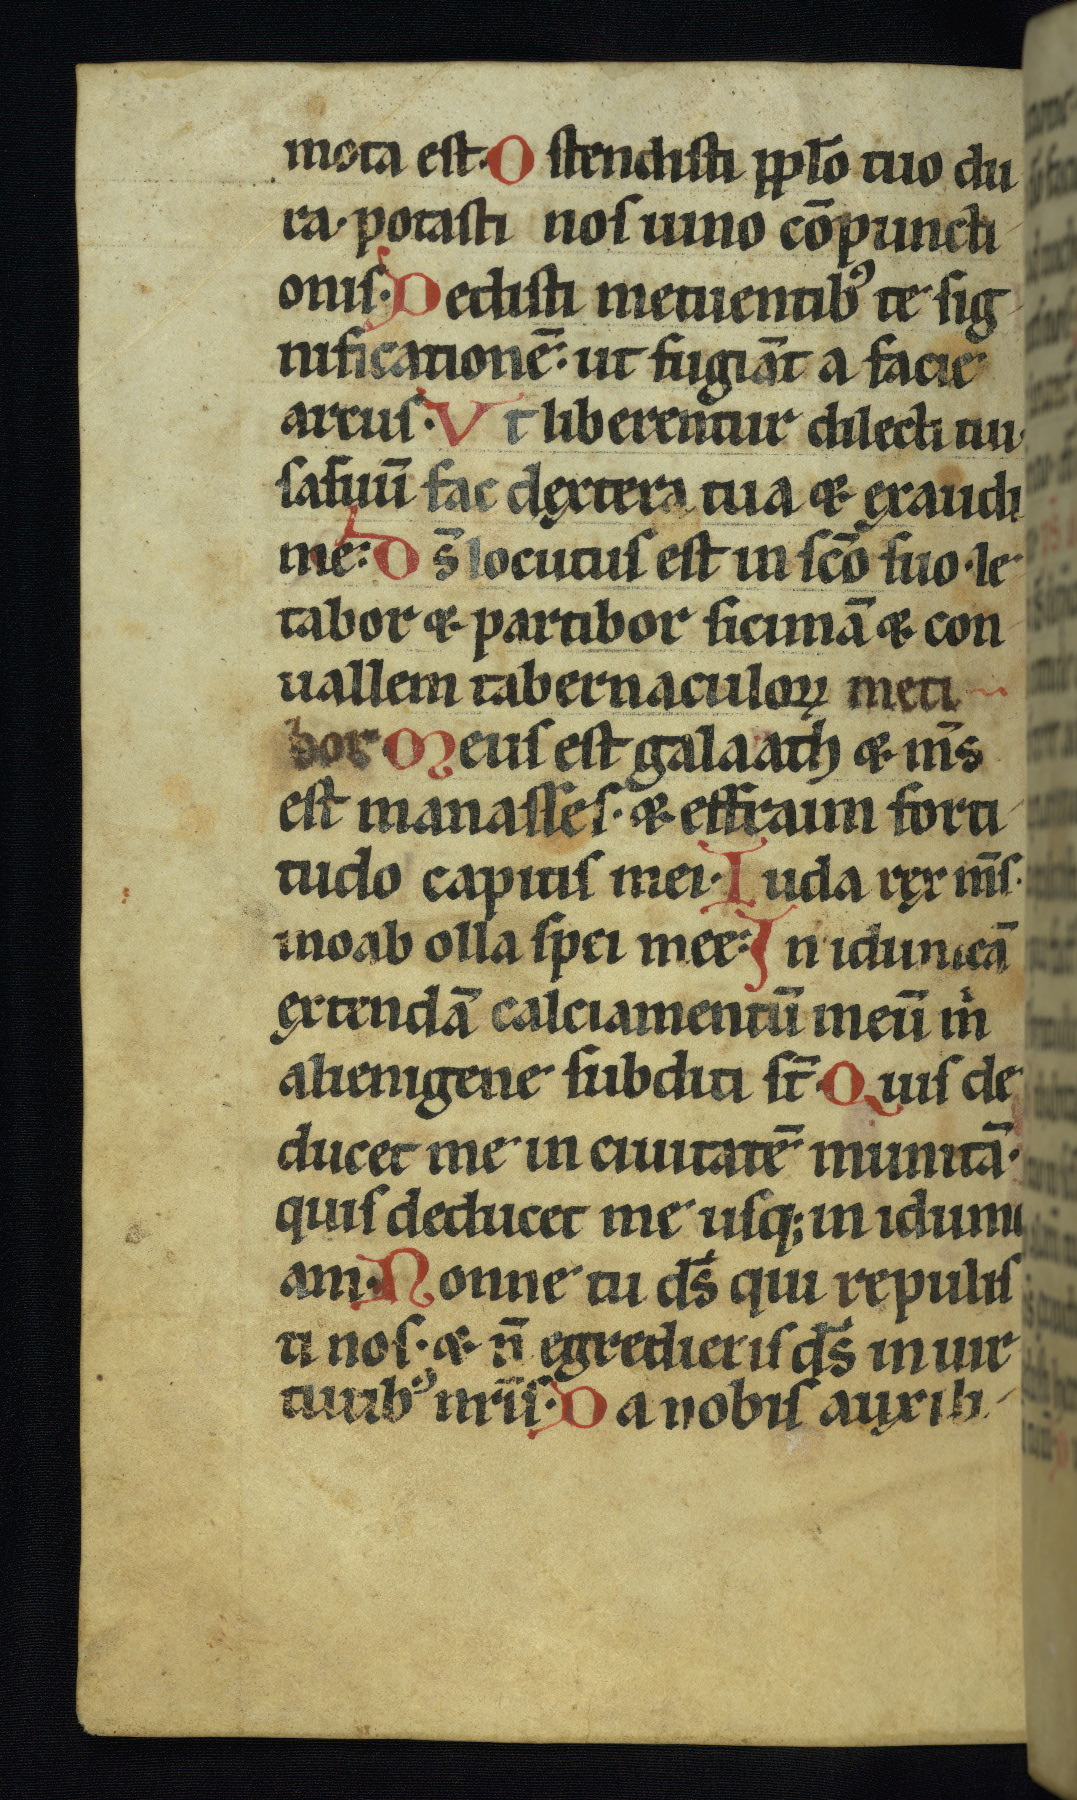 mota est. Ostendisti pplo̅ tuo du
ra. potasti nos uino co̅puncti
onis. Dedisti metuentibꝰ te sig
nificatione̅: ut fugia̅t a facie
arcus. Vt liberentur dilecti tui.
saluu̅ fac dextera tua & exaudi
me: Ds̅ locutus est in sco̅ suo. le
tabor & partibor sicima̅ & con
uallem tabernaculoꝝ meti
bor Meus est galaath & ms̅
est manasses. & effraim forti
tudo capitis mei. Iuda rex ms̅.
moab olla spei mee: In idumea̅
extenda̅ calciamentu̅ meu̅ m̍
alienigene subditi st̅. Quis de
ducet me in ciuitate̅ munita̅.
quis deducet me usq; in idume
am. Nonne tu ds̅ qui repulis
ti nos. & n̅ egredieris ds̅ in uir
tutibꝰ nr̅is. Da nobis auxili